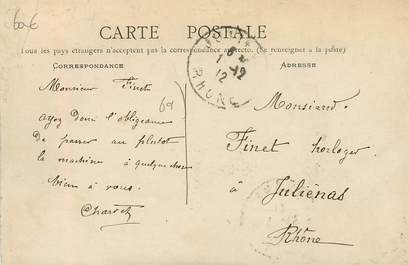 CARTE POSTALE
Tous les pays étrangers n'acceptent pas la correspondance au recto. (Se renseigner à la poste)
CORRESPONDANCE
ADRESSE
Monsieur Finet
ayez donc l'obligeance
de passer au plutot
la machine à quelque chose
bien à vous.
Charvet
69
Monsieur
Finet horloger
à Juliénas
Rhône
RHONE